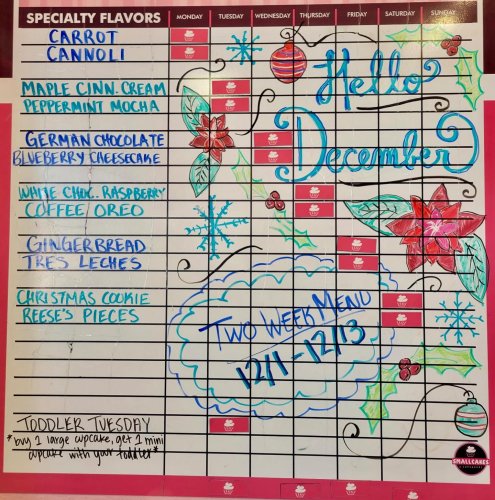 SPECIALTY FLAVORS MONDAY TUESDAY WEDNESDAY THURSDAY FRIDAY SATURDAY SUNDAY
CARROT
CANNOLI
Hello
MAPLE CINN. CREAM
PEPPERMINT MOCHA
December
GERMAN CHOCOLATE
BLUEBERRY CHEESECAKE
WHITE CHOC. RASPBERRY
COFFEE OREO
GINGERBREAD
TRES LECHES
CHRISTMAS COOKIE
REESE'S PIECES
TWO WEEK MENU
12/1-12/13
TODDLER TUESDAY
*buy 1 large cupcake, get 1 mini
cupcake with your toddler*
SMALLCAKES